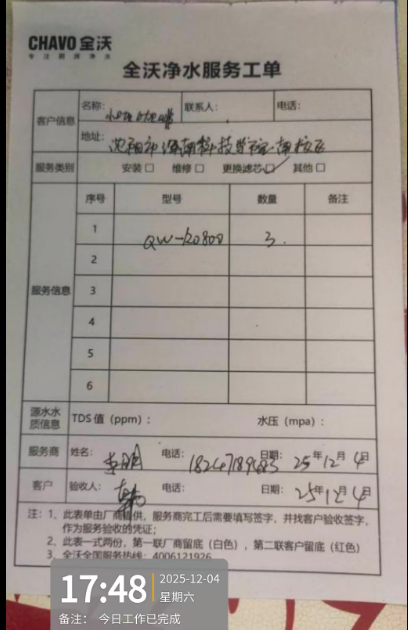 CHAVO 全沃
专 注 厨 房 净 水
全沃净水服务工单
客户信息 名称： 联系人： 电话：
地址：
服务类别 安装 □ 维修 □ 更换滤芯 □ 其他 □
序号 型号 数量 备注
服务信息
1 QW-RO800 3
2
3
4
5
6
源水水质信息 TDS 值（ppm）： 水压（mpa）：
服务商 姓名： 电话： 日期： 25年12月4日
客户 验收人： 电话： 日期： 25年12月4日
注：1、此表单由厂商提供，服务商完工后需要填写签字，并找客户验收签字，
作为服务验收的凭证；
2、此表一式两份，第一联厂商留底（白色），第二联客户留底（红色）
3、全沃全国服务热线：4006121926
17:48 2025-12-04
星期六
备注： 今日工作已完成